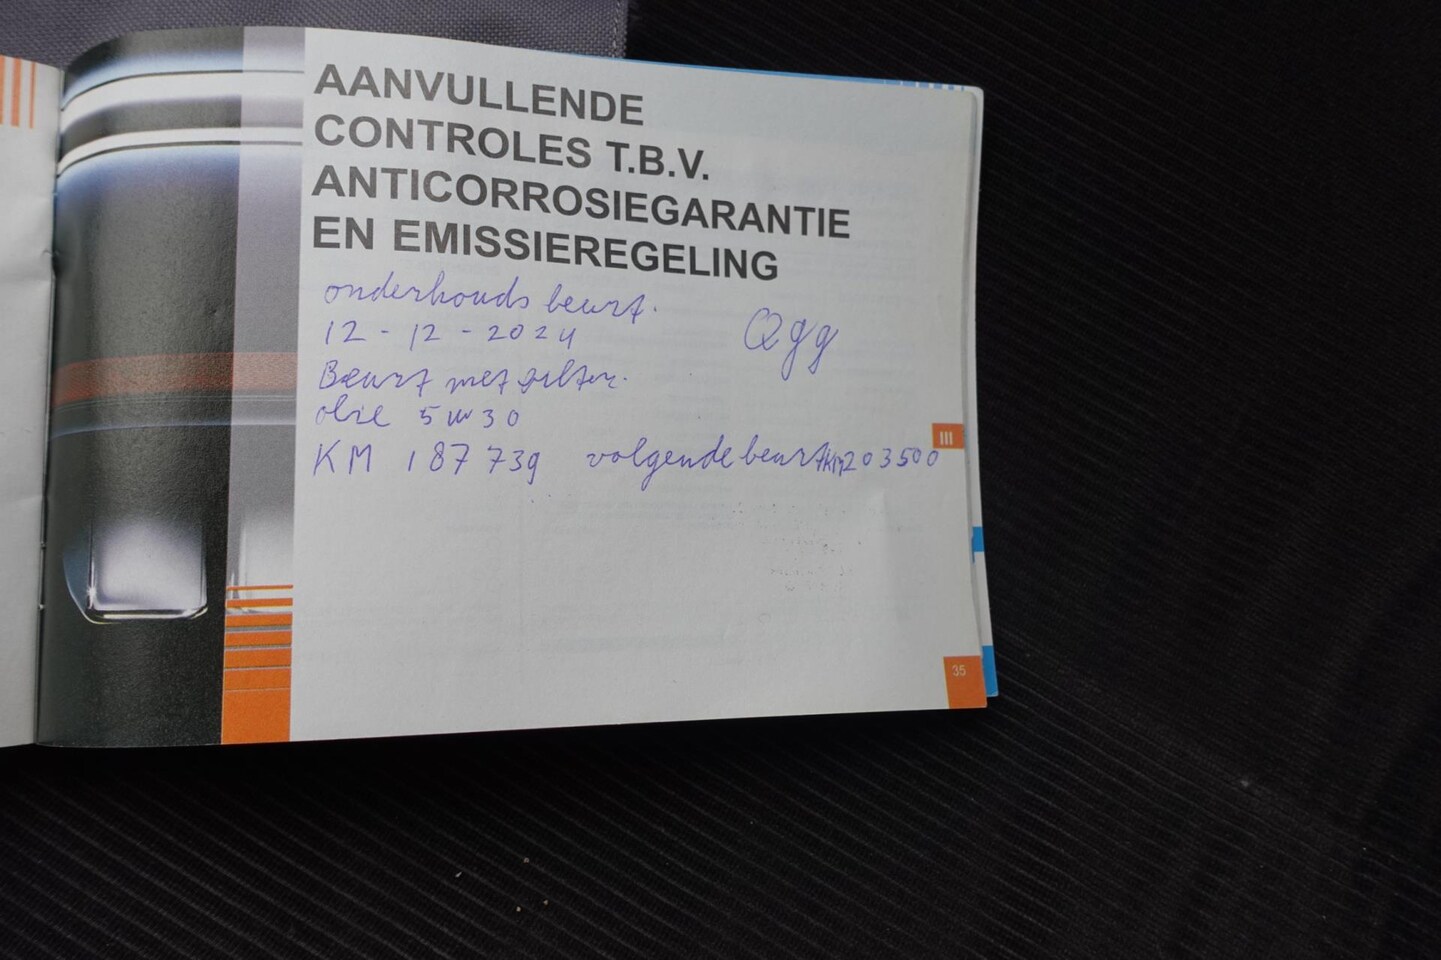 AANVULLENDE
CONTROLES T.B.V.
ANTICORROSIEGARANTIE
EN EMISSIEREGELING
onderhouds beurt.
12 - 12 - 2024
Beurt met filter.
olie 5w30
KM 187739 volgende beurt km 203500
III
35